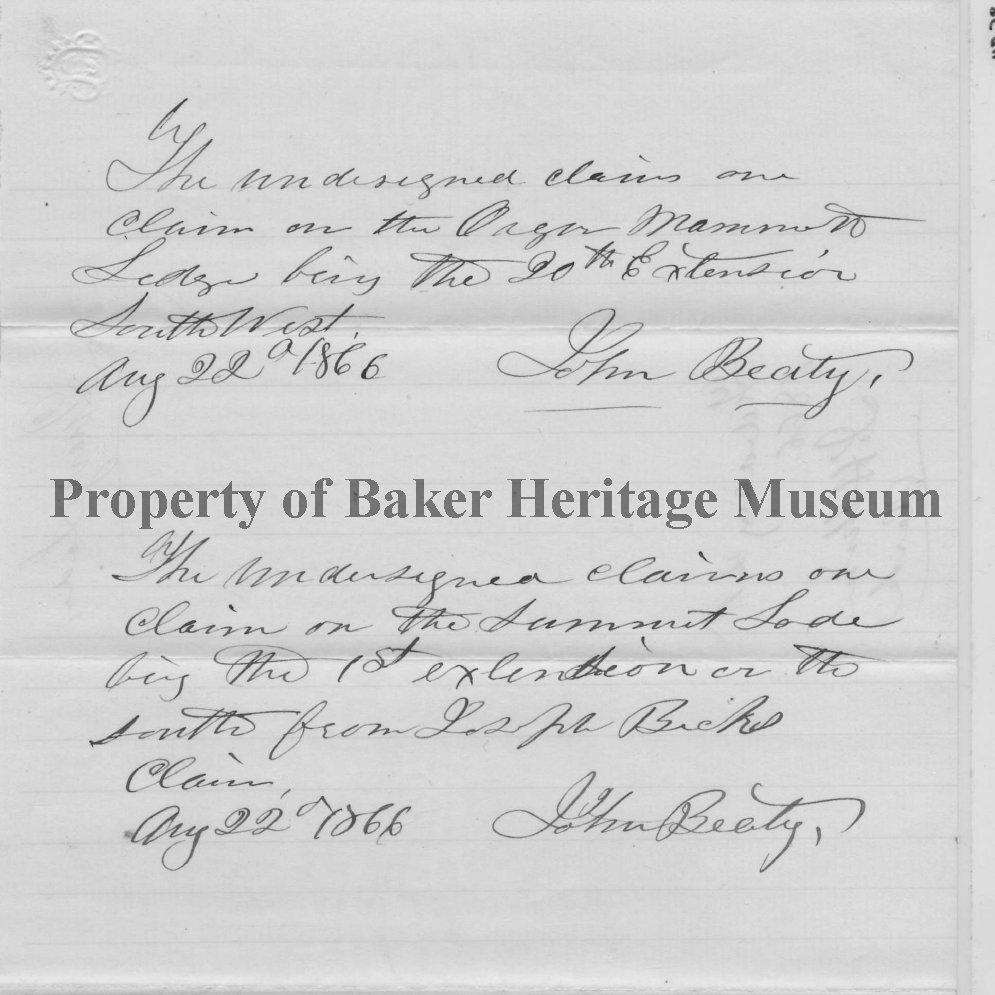 The undesigned claims one
claim on the Mammoth
Ledge being the 20th Extension
South West.
Aug 22d 1866 John Beaty,
Property of Baker Heritage Museum
The undersigned claims one
claim on the Summit Lode
being the 1st extension on the
south from Joseph
Claim,
Aug 22d 1866 John Beaty,